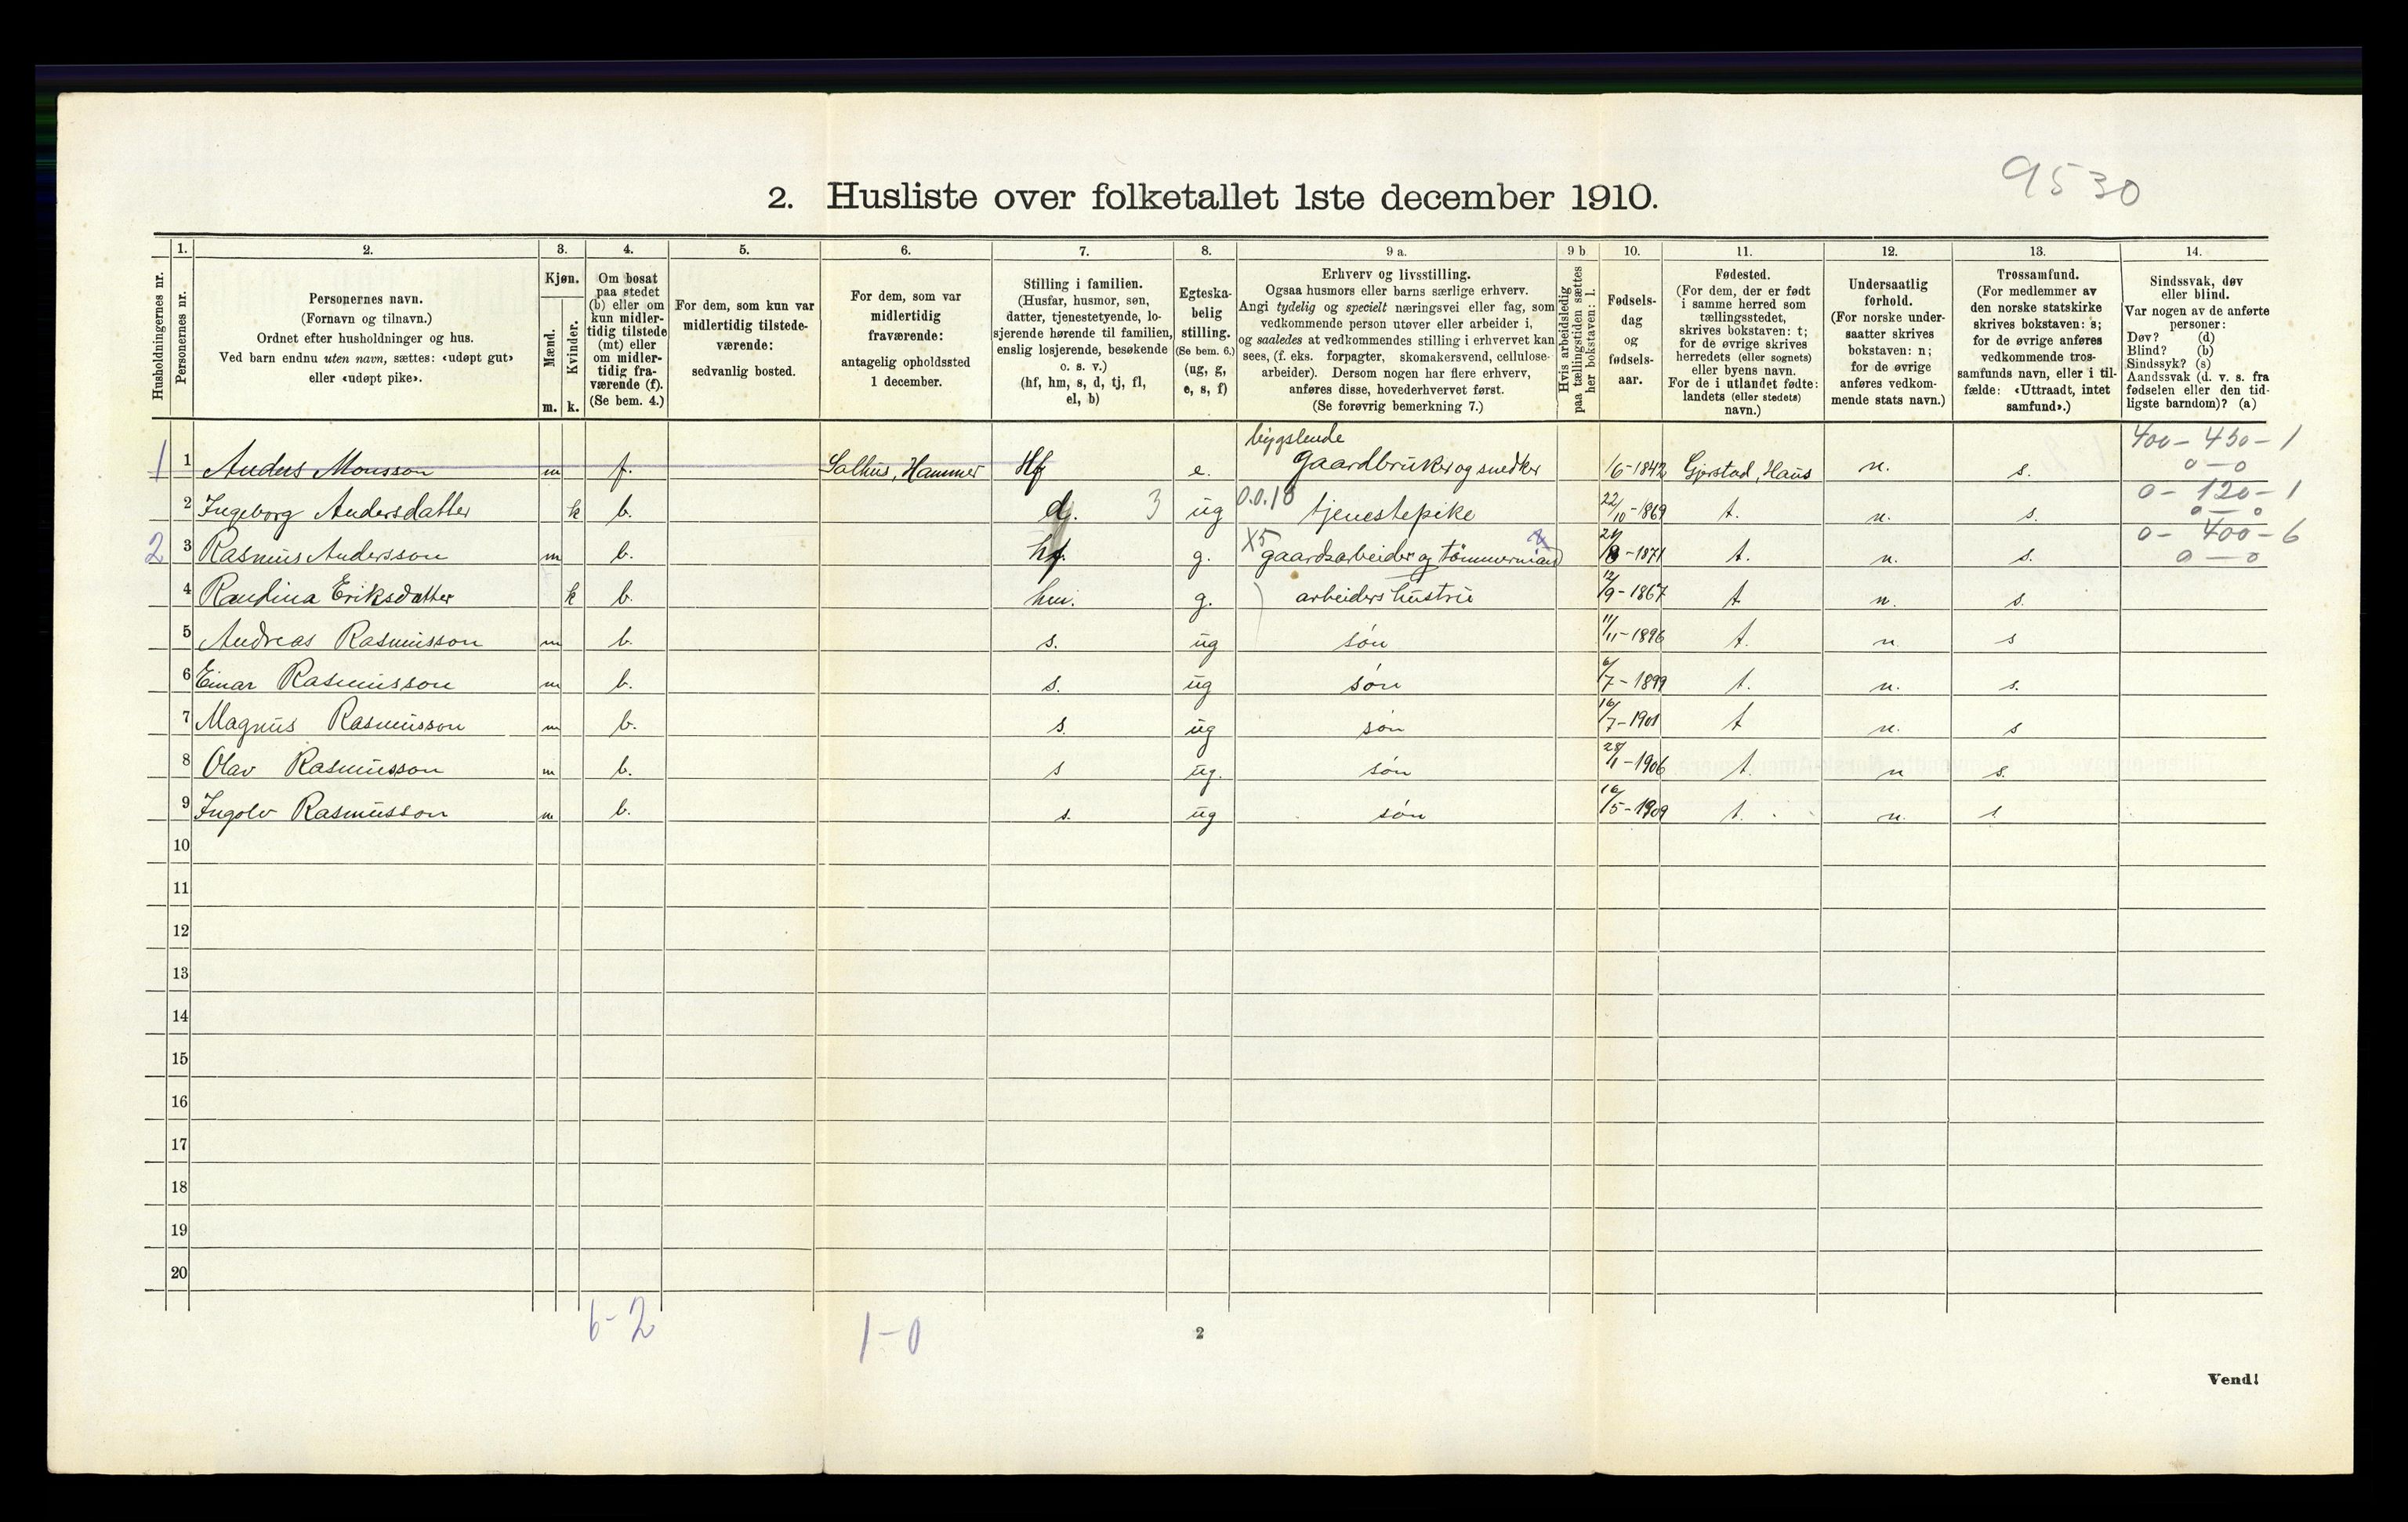 9530
2. Husliste over folketallet 1ste december 1910.
Husholdningernes nr.
1. Personernes nr.
2. Personernes navn.
(Fornavn og tilnavn.)
Ordnet efter husholdninger og hus.
Ved barn endnu uten navn, sættes: «udøpt gut»
eller «udøpt pike».
3. Kjøn.
Mænd. m.
Kvinder. k.
4. Om bosat
paa stedet
(b) eller om
kun midler-
tidig tilstede
(mt) eller
om midler-
tidig fra-
værende (f).
(Se bem. 4.)
5. For dem, som kun var
midlertidig tilstede-
værende:
sedvanlig bosted.
6. For dem, som var
midlertidig
fraværende:
antagelig opholdssted
1 december.
7. Stilling i familien.
(Husfar, husmor, søn,
datter, tjenestetyende, lo-
sjerende hørende til familien,
enslig losjerende, besøkende
o. s. v.)
(hf, hm, s, d, tj, fl,
el, b)
8. Egteska-
belig
stilling.
(Se bem. 6.)
(ug, g,
e, s, f)
9 a. Erhverv og livsstilling.
Ogsaa husmors eller barns særlige erhverv.
Angi tydelig og specielt næringsvei eller fag, som
vedkommende person utøver eller arbeider i,
og saaledes at vedkommendes stilling i erhvervet kan
sees, (f. eks. forpagter, skomakersvend, cellulose-
arbeider). Dersom nogen har flere erhverv,
anføres disse, hovederhvervet først.
(Se forøvrig bemerkning 7.)
9 b. Hvis arbeidsledig
paa tællingstiden sættes
her bokstaven: l.
10. Fødsels-
dag
og
fødsels-
aar.
11. Fødested.
(For dem, der er født
i samme herred som
tællingsstedet,
skrives bokstaven: t;
for de øvrige skrives
herredets (eller sognets)
eller byens navn.
For de i utlandet fødte:
landets (eller stedets)
navn.)
12. Undersaatlig
forhold.
(For norske under-
saatter skrives
bokstaven: n;
for de øvrige
anføres vedkom-
mende stats navn.)
13. Trossamfund.
(For medlemmer av
den norske statskirke
skrives bokstaven: s;
for de øvrige anføres
vedkommende tros-
samfunds navn, eller i til-
fælde: «Uttraadt, intet
samfund».)
14. Sindssvak, døv
eller blind.
Var nogen av de anførte
personer:
Døv? (d)
Blind? (b)
Sindssyk? (s)
Aandssvak (d. v. s. fra
fødselen eller den tid-
ligste barndom)? (a)
bygslende 400 - 450 - 1
1 1 Anders Monsson m f. Salhus, Hammer Hf e. gaardbruker og snedker 1/6-1842 Gjerstad, Haus n. s. 0-0
2 Ingeborg Andersdatter k b. d. 3 ug 0.0.18 tjenestepike 22/10-1869 t. n. s. 0 - 120 - 1
0-0
2 3 Rasmus Andersson m b. hf. g. X5 gaardsarbeider og tømmermand 1871 t. n. s. 0 - 400 - 6
0-0
4 Randina Eriksdatter k b. hm. g. arbeiders hustru 12/9-1867 t n. s.
5 Andreas Rasmusson m b. s. ug søn 11/11-1896 t. n. s
6 Einar Rasmusson m b. s. ug søn 6/7-1899 t. n. s.
7 Magnus Rasmusson m b. s. ug søn 16/7-1901 t n. s
8 Olav Rasmusson m b. s ug. søn 28/1-1906 t. n s.
9 Ingolv Rasmusson m b. s. ug søn 16/5-1909 t. n. s
10
11
12
13
14
15
16
17
18
19
20
6-2
1-0
2
Vend!